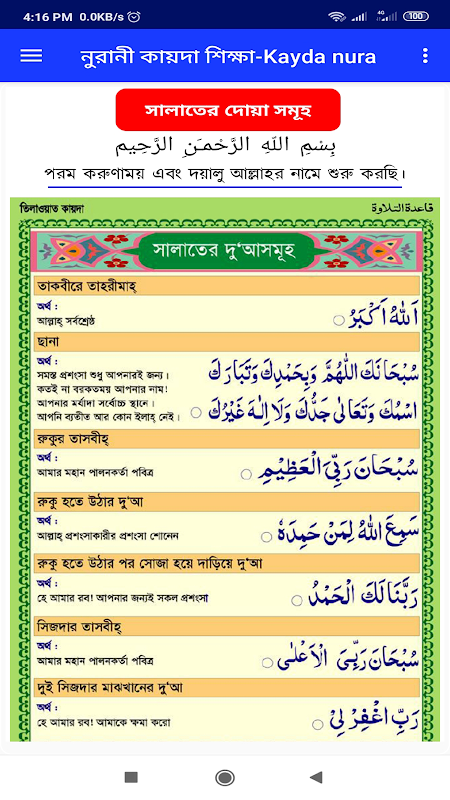 4:16 PM 0.0KB/s
4G
100
নুরানী কায়দা শিক্ষা-Kayda nura
সালাতের দোয়া সমূহ
بِسْمِ اللَّهِ الرَّحْمَـٰنِ الرَّحِيمِ
পরম করুণাময় এবং দয়ালু আল্লাহর নামে শুরু করছি।
তিলাওয়াত কায়দা
قاعدة التلاوة
সালাতের দু‘আসমূহ
তাকবীরে তাহরীমাহ্
অর্থ :
আল্লাহ্ সর্বশ্রেষ্ঠ
اَللّٰهُ اَكْبَرُ
ছানা
অর্থ :
সমস্ত প্রশংসা শুধু আপনারই জন্য।
কতই না বরকতময় আপনার নাম!
আপনার মর্যাদা সর্বোচ্চ স্থানে।
আপনি ব্যতীত আর কোন ইলাহ্ নেই।
سُبْحَانَكَ اللّٰهُمَّ وَبِحَمْدِكَ وَتَبَارَكَ
اسْمُكَ وَتَعَالٰى جَدُّكَ وَلَا اِلٰهَ غَيْرُكَ
রুকুর তাসবীহ্
অর্থ :
আমার মহান পালনকর্তা পবিত্র
سُبْحَانَ رَبِّيَ الْعَظِيْمِ
রুকু হতে উঠার দু‘আ
অর্থ :
আল্লাহ্ প্রশংসাকারীর প্রশংসা শোনেন
سَمِعَ اللّٰهُ لِمَنْ حَمِدَهٗ
রুকু হতে উঠার পর সোজা হয়ে দাড়িয়ে দু‘আ
অর্থ :
হে আমার রব! আপনার জন্যই সকল প্রশংসা
رَبَّنَا لَكَ الْحَمْدُ
সিজদার তাসবীহ্
অর্থ :
আমার মহান পালনকর্তা পবিত্র
سُبْحَانَ رَبِّيَ الْاَعْلٰى
দুই সিজদার মাঝখানের দু‘আ
অর্থ :
হে আমার রব! আমাকে ক্ষমা করো
رَبِّ اغْفِرْ لِيْ